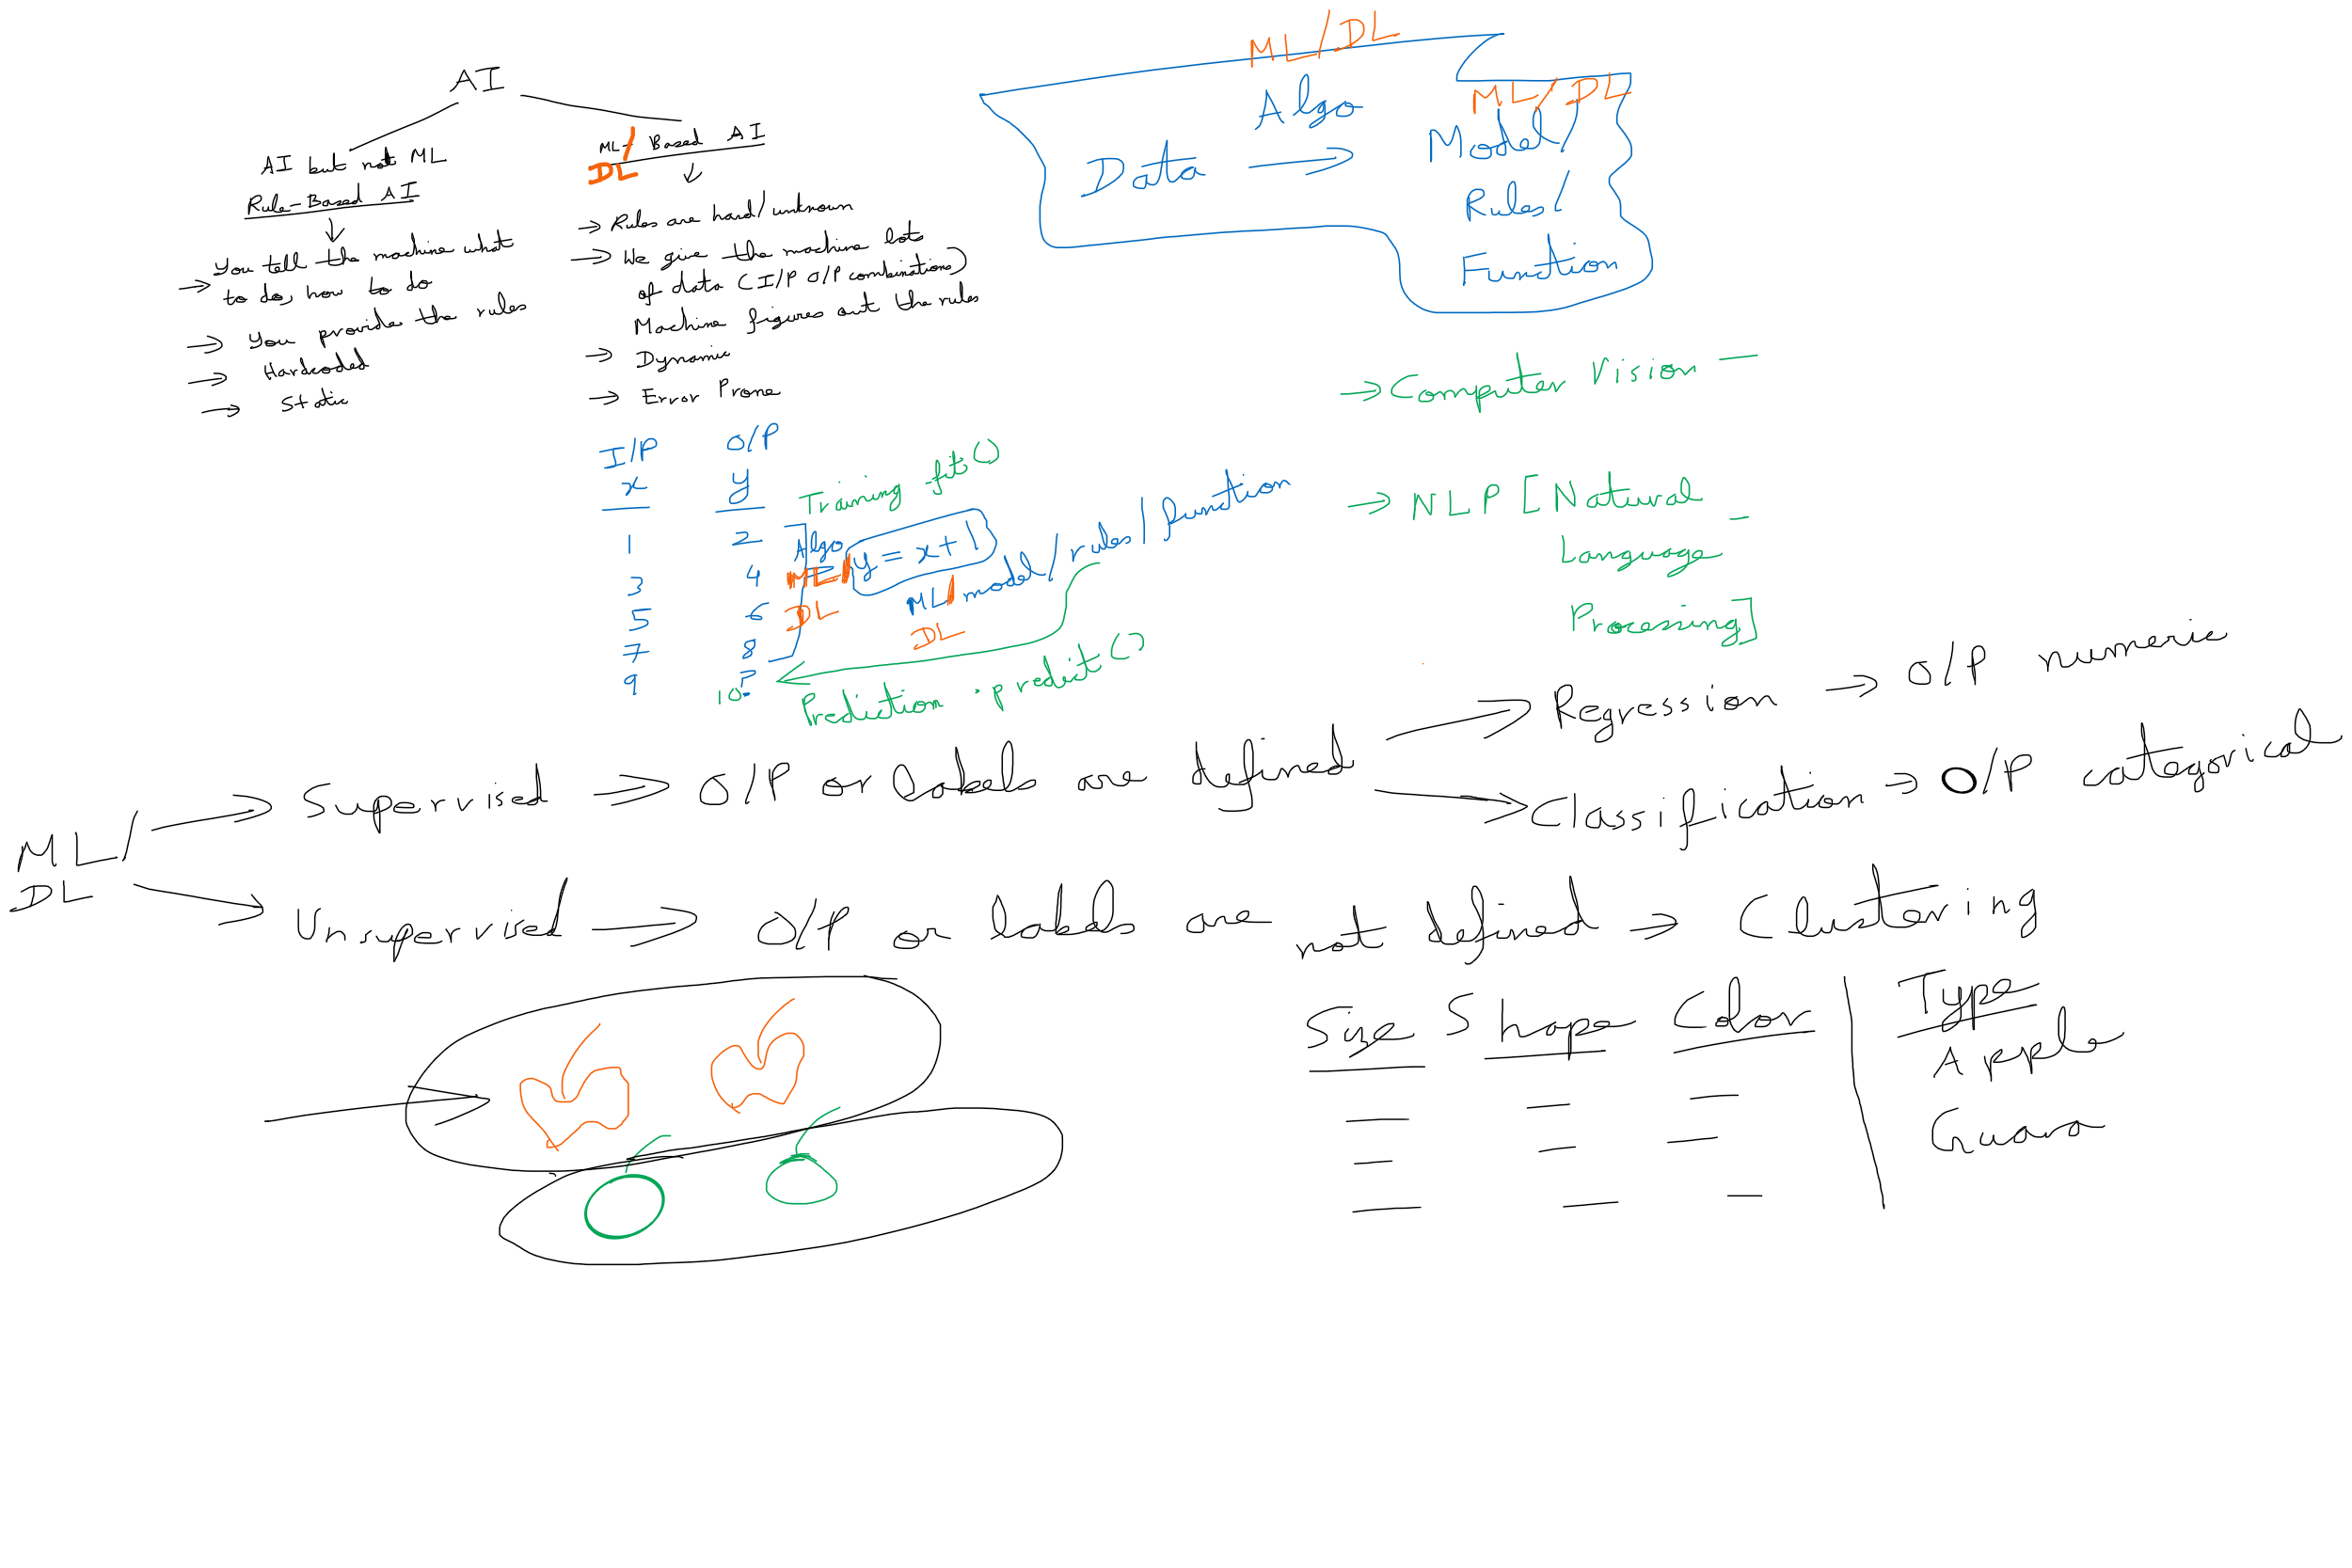 AI
AI but not ML
Rule-Based AI
→ You tell the machine what
to do, how to do
→ You provide the rules
→ Hardcoded
→ Static
ML/ Based AI
DL
→ Rules are hard/unknown
→ We give the machine lots
of data (I/P O/P combinations)
Machine figures out the rules
→ Dynamic
→ Error Prone
ML/DL
Algo
Data → Model/
ML/DL
Rules/
Function
I/P O/P
x y
1 2
3 4
5 6
7 8
9 ?
10
Training .fit()
Algo
ML/
DL
y = x+1
ML/model/rules/function
DL
Prediction .predict()
→ Computer Vision –
→ NLP [Natural
Language –
Processing]
ML/
DL
→ Supervised → O/P or labels are defined
→ Regression → O/P numeric
→ Classification → O/P categorical
→ Unsupervised → O/P or labels are not defined → Clustering
Size Shape Color Type
Apple
Guava